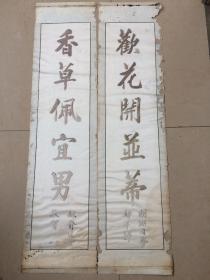 歡花開並蒂
香草佩宜男